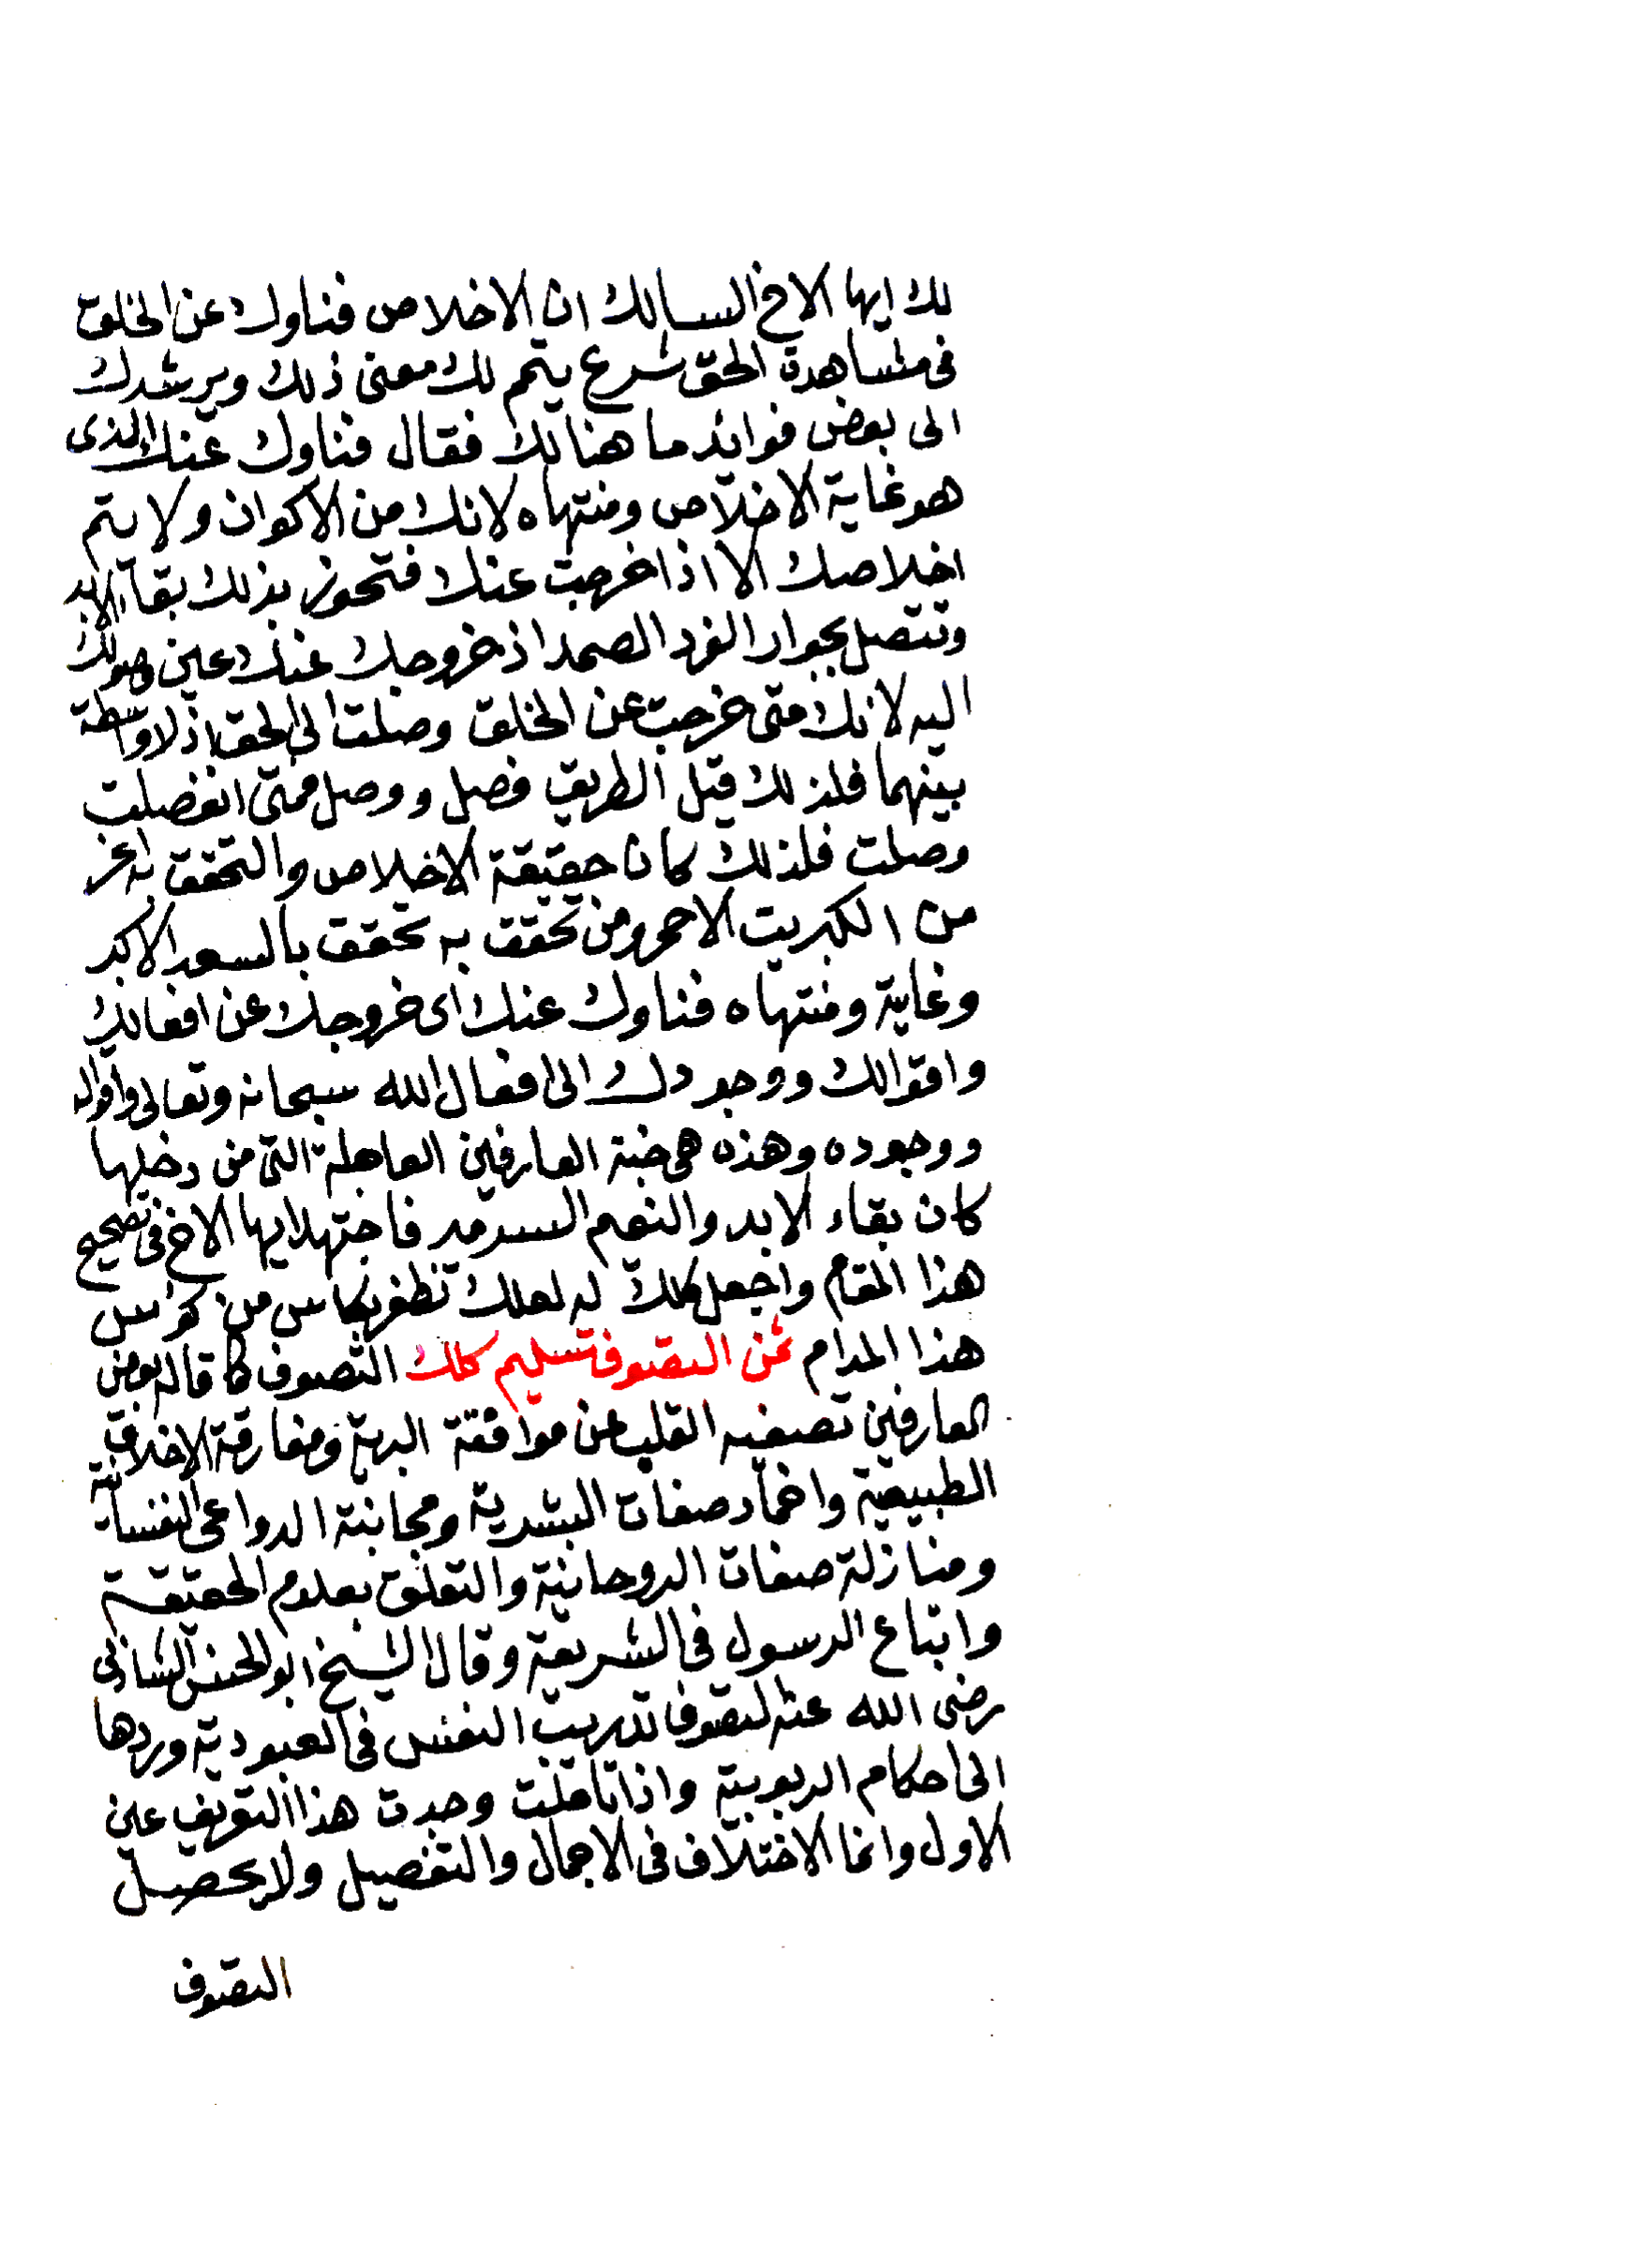 لك ايها الاخ السالك ان الاخلاص فناوك عن الخلق
فى مشاهدة الحق شرع يتم لك معنى ذلك ويرشدك
الى بعض فوائد ما هنالك فقال فناوك عنك الذى
هو غاية الاخلاص ومنتهاه لانك من الاكوان ولا يتم
اخلاصك الا اذا خرجت عنك فتحوز بذلك بقآء الابد
وتتصل بجوار الفرد الصمد اذ خروجك عنك عين وصولك
اليه لانك متى خرجت عن الخلق وصلت الى الحق اذ لا واسطة
بينهما فلذلك قيل الطريق فصل ووصل فمتى انفصلت
وصلت فلذلك كان حقيقة الاخلاص والتحقق به اعز
من الكبريت الاحمر ومن تحقق به تحقق بالسعد الاكبر
وغايته ومنتهاه فناوك عنك اى خروجك عن افعالك
واقوالك ووجودك الى افعال الله سبحانه وتعالى واقواله
ووجوده وهذه هى جنة العارفين العاجلة التى من دخلها
كان بقاء الابد والنعيم السرمد فاجتهد ايها الاخ فى تصحيح
هذا المقام واجعل كلك له لعلك تظفر بكاس من كوس
هذا المدام ثمن التصوف تسليم كلك التصوف كما قاله بعض
العارفين تصفيه القلب عن موافقة البرية ومفارقة الاخلاق
الطبيعية واخماد صفات البشرية ومجانبة الدواعى النفسانية
ومنازلة صفات الروحانية والتعلق بعلوم الحقيقة
واتباع الرسول فى الشريعة وقال الشيخ ابو الحسن الشاذلى
رضى الله عنه التصوف تدريب النفس فى العبودية وردها
الى احكام الربوبية واذا تاملت وجدت هذا التعريف عين
الاول وانما الاختلاف فى الاجمال والتفصيل ولا يحصل
التصوف